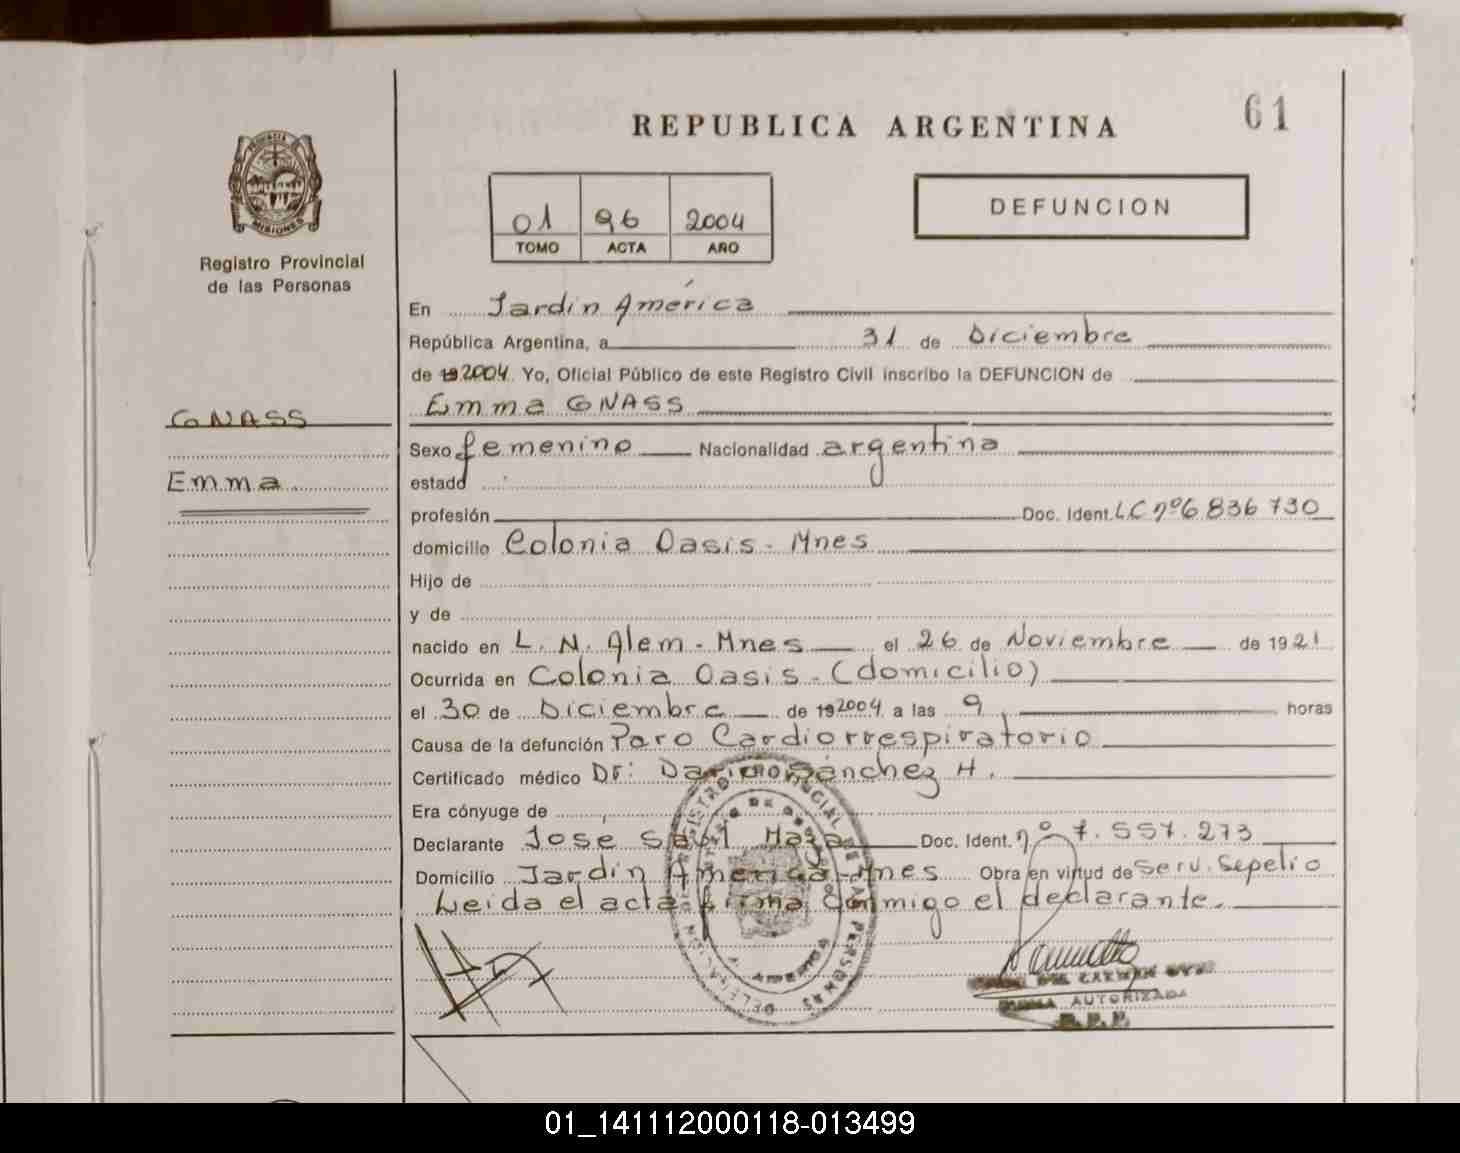 61
REPUBLICA ARGENTINA
PROVINCIA DE
MISIONES
Registro Provincial
de las Personas
01 96 2004
TOMO ACTA AÑO
DEFUNCION
En Jardín América
República Argentina, a 31 de Diciembre
de 19 2004 Yo, Oficial Público de este Registro Civil inscribo la DEFUNCION de
GNASS
Emma GNASS
Sexo femenino Nacionalidad argentina
Emma
estado
profesión Doc. Ident. LC nº 6 836 730
domicilio Colonia Oasis - Mnes
Hijo de
y de
nacido en L. N. Alem - Mnes el 26 de Noviembre de 1921
Ocurrida en Colonia Oasis - (domicilio)
el 30 de Diciembre de 19 2004 a las 9 horas
Causa de la defunción Paro Cardiorrespiratorio
Certificado médico Dr: Sánchez H.
Era cónyuge de
Declarante Jose Saul Doc. Ident. nº 7.557.273
Domicilio Jardín America - Mnes Obra en virtud de Serv. Sepelio
Leida el acta firma conmigo el declarante.
DEL CARMEN
FIRMA AUTORIZADA
R.P.P.
REGISTRO PROVINCIAL DE LAS PERSONAS
DELEGACION
01_141112000118-013499